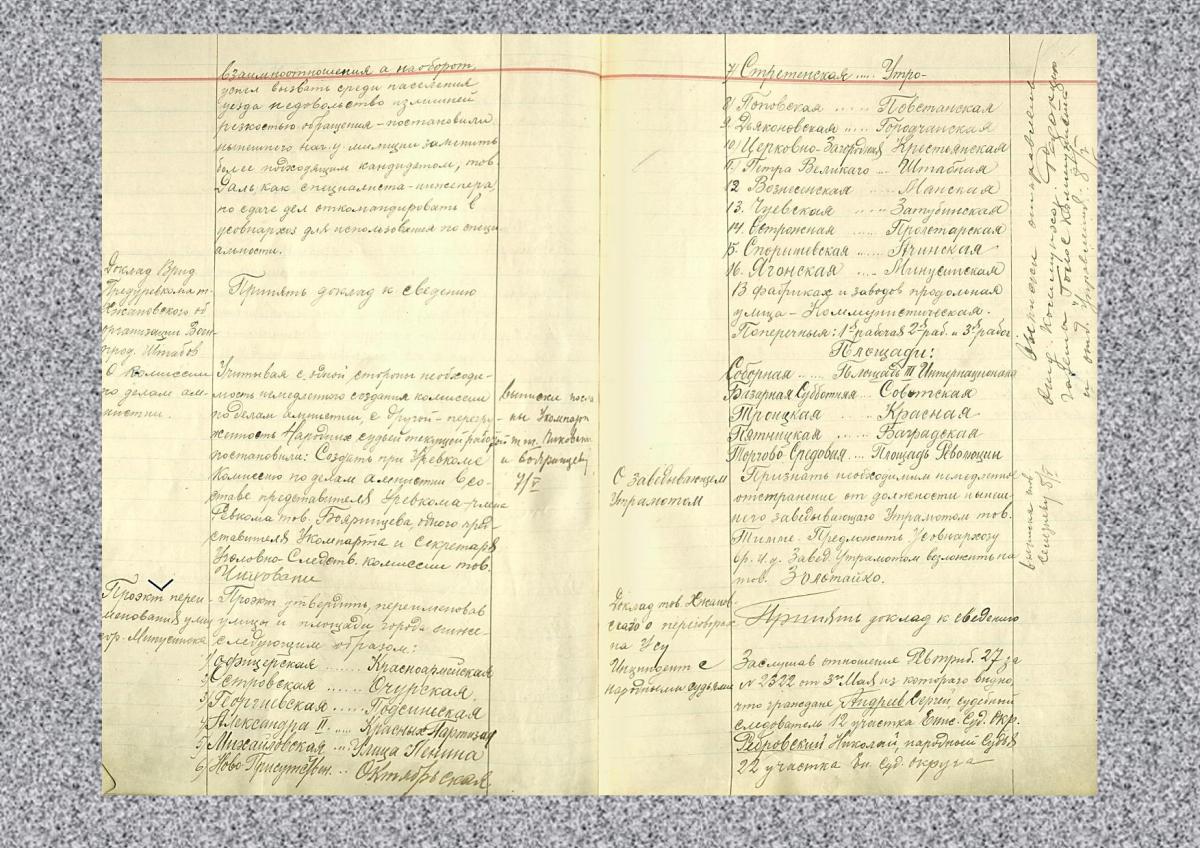 взаимоотношения а наоборот
успел вызвать среди населения
уезда недовольство излишней
резкостью обращения - постановили
нынешнего нач. у. милиции заменить
более подходящим кандидатом, тов.
Даль, как специалиста-инженера,
по сдаче дел откомандировать в
усовнархоз для использования по специ
альности.
Доклад Врид
организации Воен-
Штабов
Принять доклад к сведению
О комиссии
по делам ам-
нистии.
Учитывая с одной стороны необходи-
мость немедленого создания комиссии
по делам амнистии, с другой -
Народных судьей текущей работой
постановили: Создать при Уревкоме
Комиссию по делам амнистии в со-
ставе представителя Уревкома-члена
Ревкома тов. Бояринцева, одного пред
ставителя Укомпарта и Секретаря
Уголовно-Следств. комиссии тов.
Чиковани
выписки посла
ны Укомпарт
и Бояринцеву
7/V
Проэкт переи
менования улиц
гор. Минусинска
Проэкт утвердить, переименовав
улицы и площади города
следующим образом:
1) Офицерская ..... Красноармейская
2) Островская ...... Очурская
3) Георгиевская ..... Подсинская
4) Александра II ..... Красных Партизан
5) Михайловская ... Улица Ленина
6) Ново-Присутств. .. Октябрьская
7) Стретенская ..... Утро-
8) Поповская ..... Повстанская
9. Дьяконовская ..... Городчанская
10) Церковно-Загородная Крестьянская
11) Петра Великаго ... Штабная
12 Вознесенская ..... Манская
13. Чуевская .... Затубинская
14. Острожная ..... Пролетарская
15. Спорышевская .... Ачинская
16. Ягонская .... Минусинская
В фабриках и заводов продольная
улица - Коммунистическая.
Поперечныя: 1я рабочая 2я раб. и 3я рабоч.
Площади:
Соборная ..... Площадь III Интернационала
Базарная Субботняя ... Советская
Троицкая ..... Красная
Пятницкая ..... Баградская
Торгово-Средовая ... Площадь Революции
О Заведывающем
Утрамотом
Признать необходимым немедленое
отстранение от должности нынеш
него заведывающего Утрамотом тов.
Предложить Усовнархозу
Завед. Утрамотом возложить на
тов. Зольтайко.
Доклад тов.
о переговорах
на Усу
Принять доклад к сведению
Инцидент с
народными судьями
Заслушав отношение Ревтриб. 27 за
№ 2322 от 3го Мая из котораго видно,
что граждане Андреев Сергей судебный
следователь 12 участка Енис. Суд. Окр.
Николай, народный Судья
22 участка Ен. Суд. округа
Выписки отправлены
газета "Голос Коммунизма"
и отд. управления. 8/V
выписка тов.
8/V